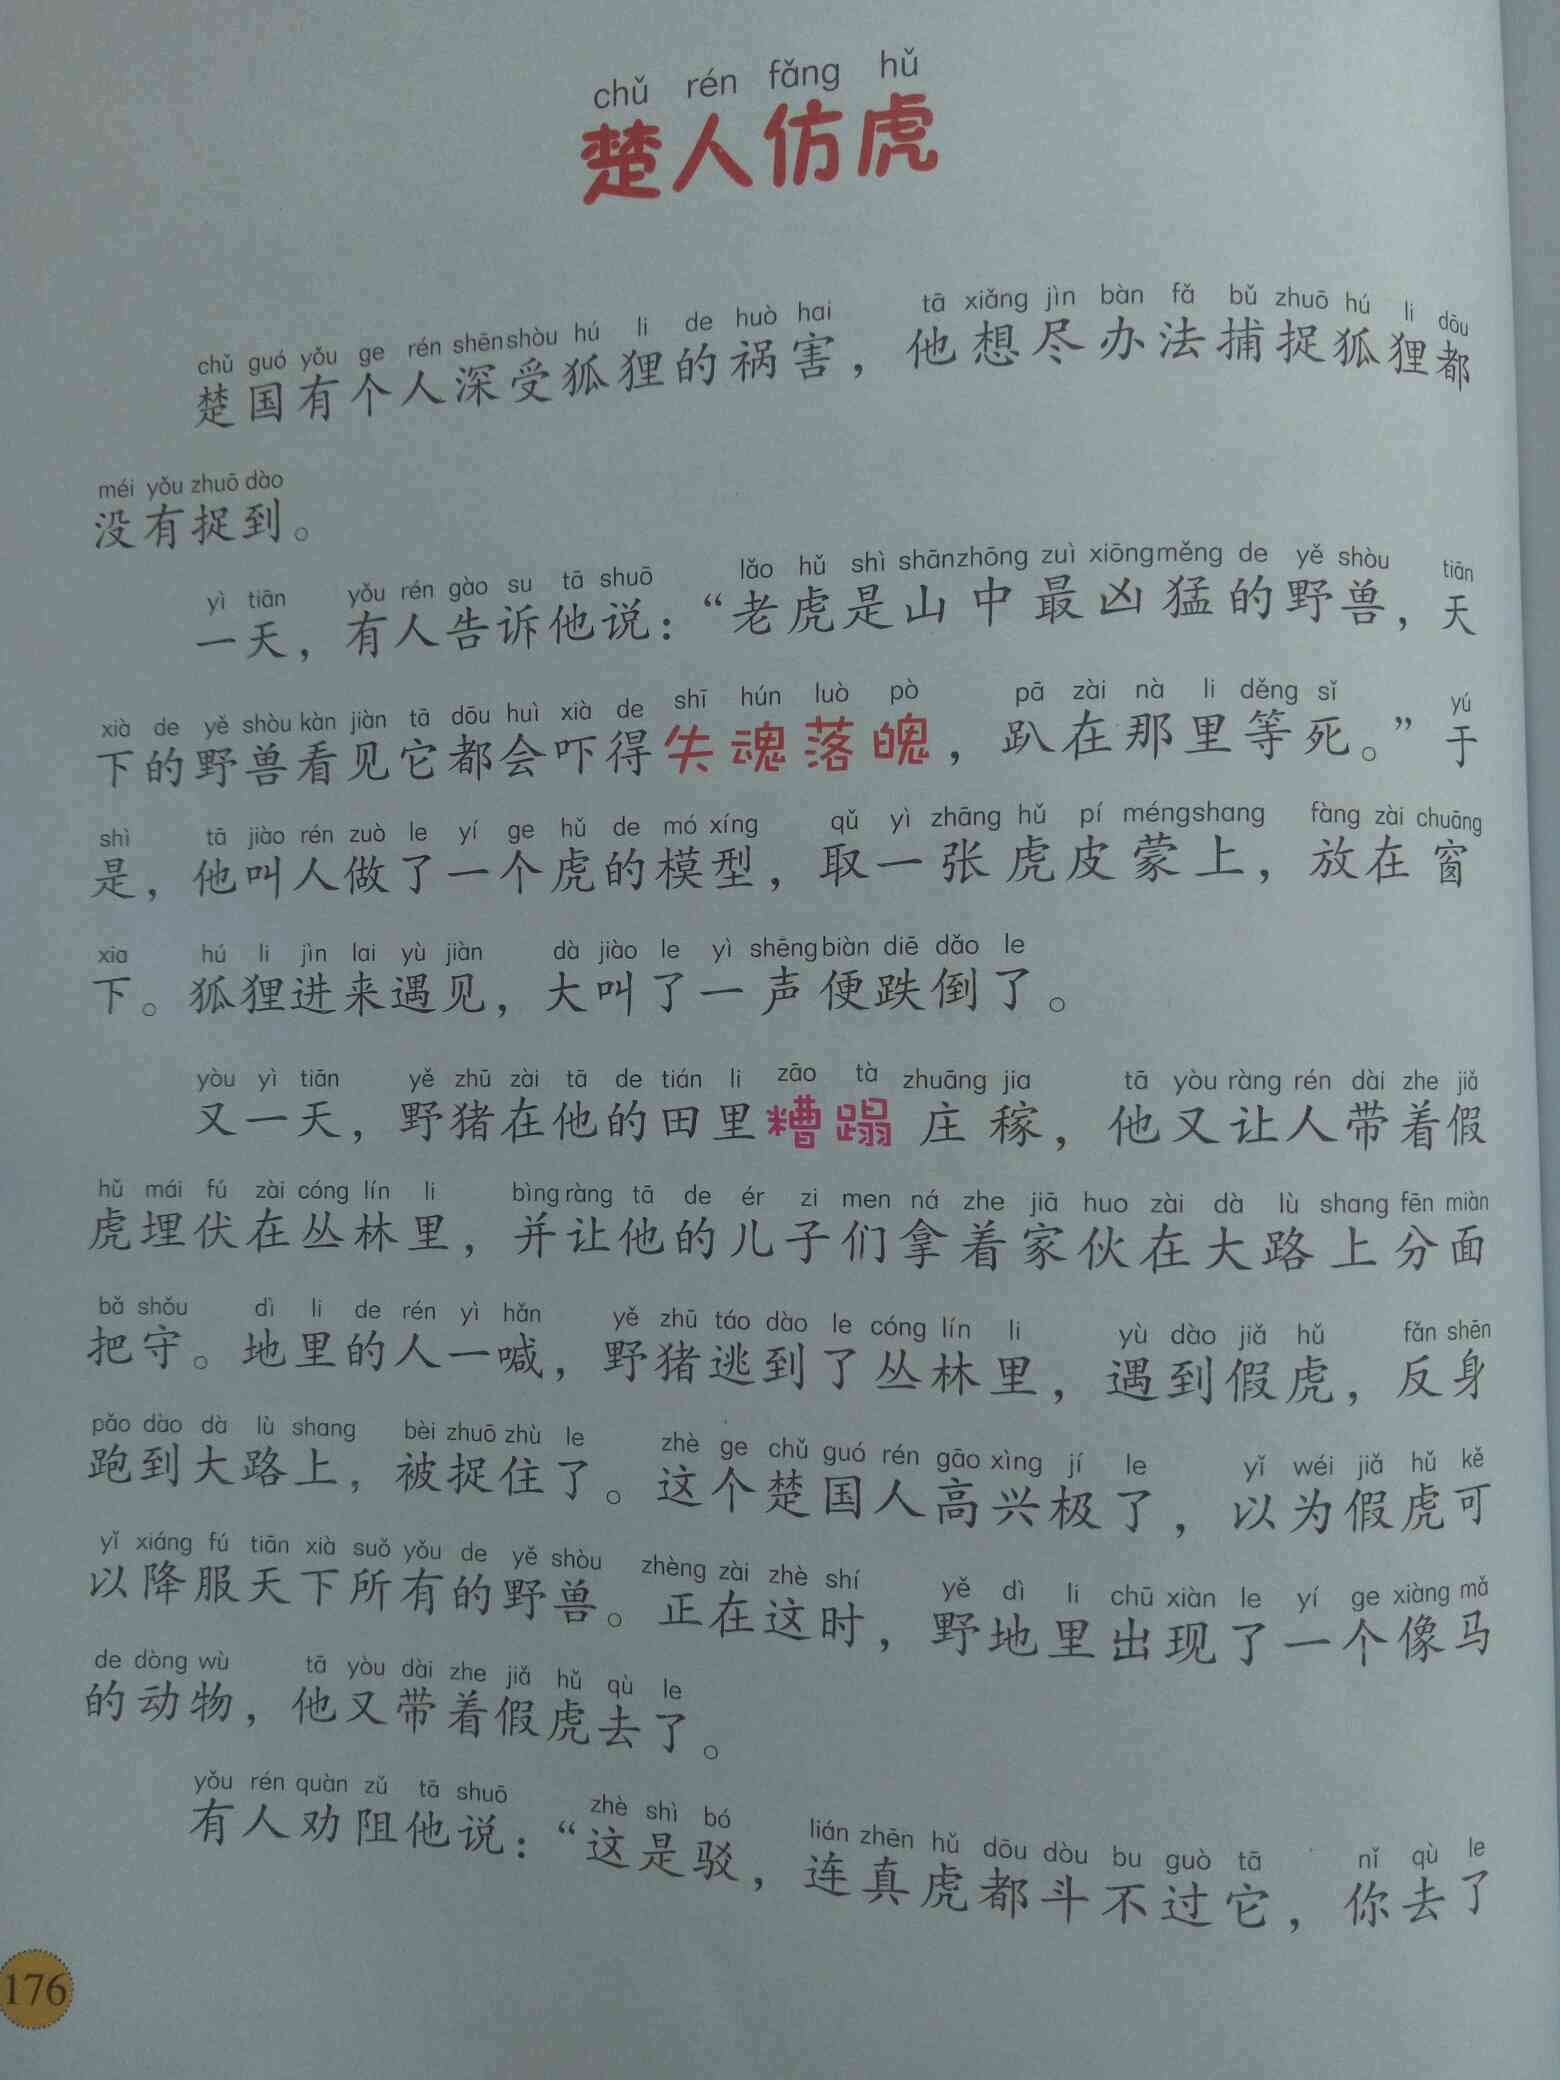 chǔ rén fǎng hǔ
楚人仿虎
chǔ guó yǒu ge rén shēn shòu hú li de huò hai tā xiǎng jìn bàn fǎ bǔ zhuō hú li dōu
楚国有个人深受狐狸的祸害，他想尽办法捕捉狐狸都
méi yǒu zhuō dào
没有捉到。
yì tiān yǒu rén gào su tā shuō lǎo hǔ shì shān zhōng zuì xiōng měng de yě shòu tiān
一天，有人告诉他说：“老虎是山中最凶猛的野兽，天
xià de yě shòu kàn jiàn tā dōu huì xià de shī hún luò pò pā zài nà li děng sǐ yú
下的野兽看见它都会吓得失魂落魄，趴在那里等死。”于
shì tā jiào rén zuò le yí ge hǔ de mó xíng qǔ yì zhāng hǔ pí méng shang fàng zài chuāng
是，他叫人做了一个虎的模型，取一张虎皮蒙上，放在窗
xia hú li jìn lai yù jiàn dà jiào le yì shēng biàn diē dǎo le
下。狐狸进来遇见，大叫了一声便跌倒了。
yòu yì tiān yě zhū zài tā de tián li zāo tà zhuāng jia tā yòu ràng rén dài zhe jiǎ
又一天，野猪在他的田里糟蹋庄稼，他又让人带着假
hǔ mái fú zài cóng lín li bìng ràng tā de ér zi men ná zhe jiā huo zài dà lù shang fēn miàn
虎埋伏在丛林里，并让他的儿子们拿着家伙在大路上分面
bǎ shǒu dì li de rén yì hǎn yě zhū táo dào le cóng lín li yù dào jiǎ hǔ fǎn shēn
把守。地里的人一喊，野猪逃到了丛林里，遇到假虎，反身
pǎo dào dà lù shang bèi zhuō zhù le zhè ge chǔ guó rén gāo xìng jí le yǐ wéi jiǎ hǔ kě
跑到大路上，被捉住了。这个楚国人高兴极了，以为假虎可
yǐ xiáng fú tiān xià suǒ yǒu de yě shòu zhèng zài zhè shí yě dì li chū xiàn le yí ge xiàng mǎ
以降服天下所有的野兽。正在这时，野地里出现了一个像马
de dòng wù tā yòu dài zhe jiǎ hǔ qù le
的动物，他又带着假虎去了。
yǒu rén quàn zǔ tā shuō zhè shì bó lián zhēn hǔ dōu dòu bu guò tā nǐ qù le
有人劝阻他说：“这是驳，连真虎都斗不过它，你去了
176